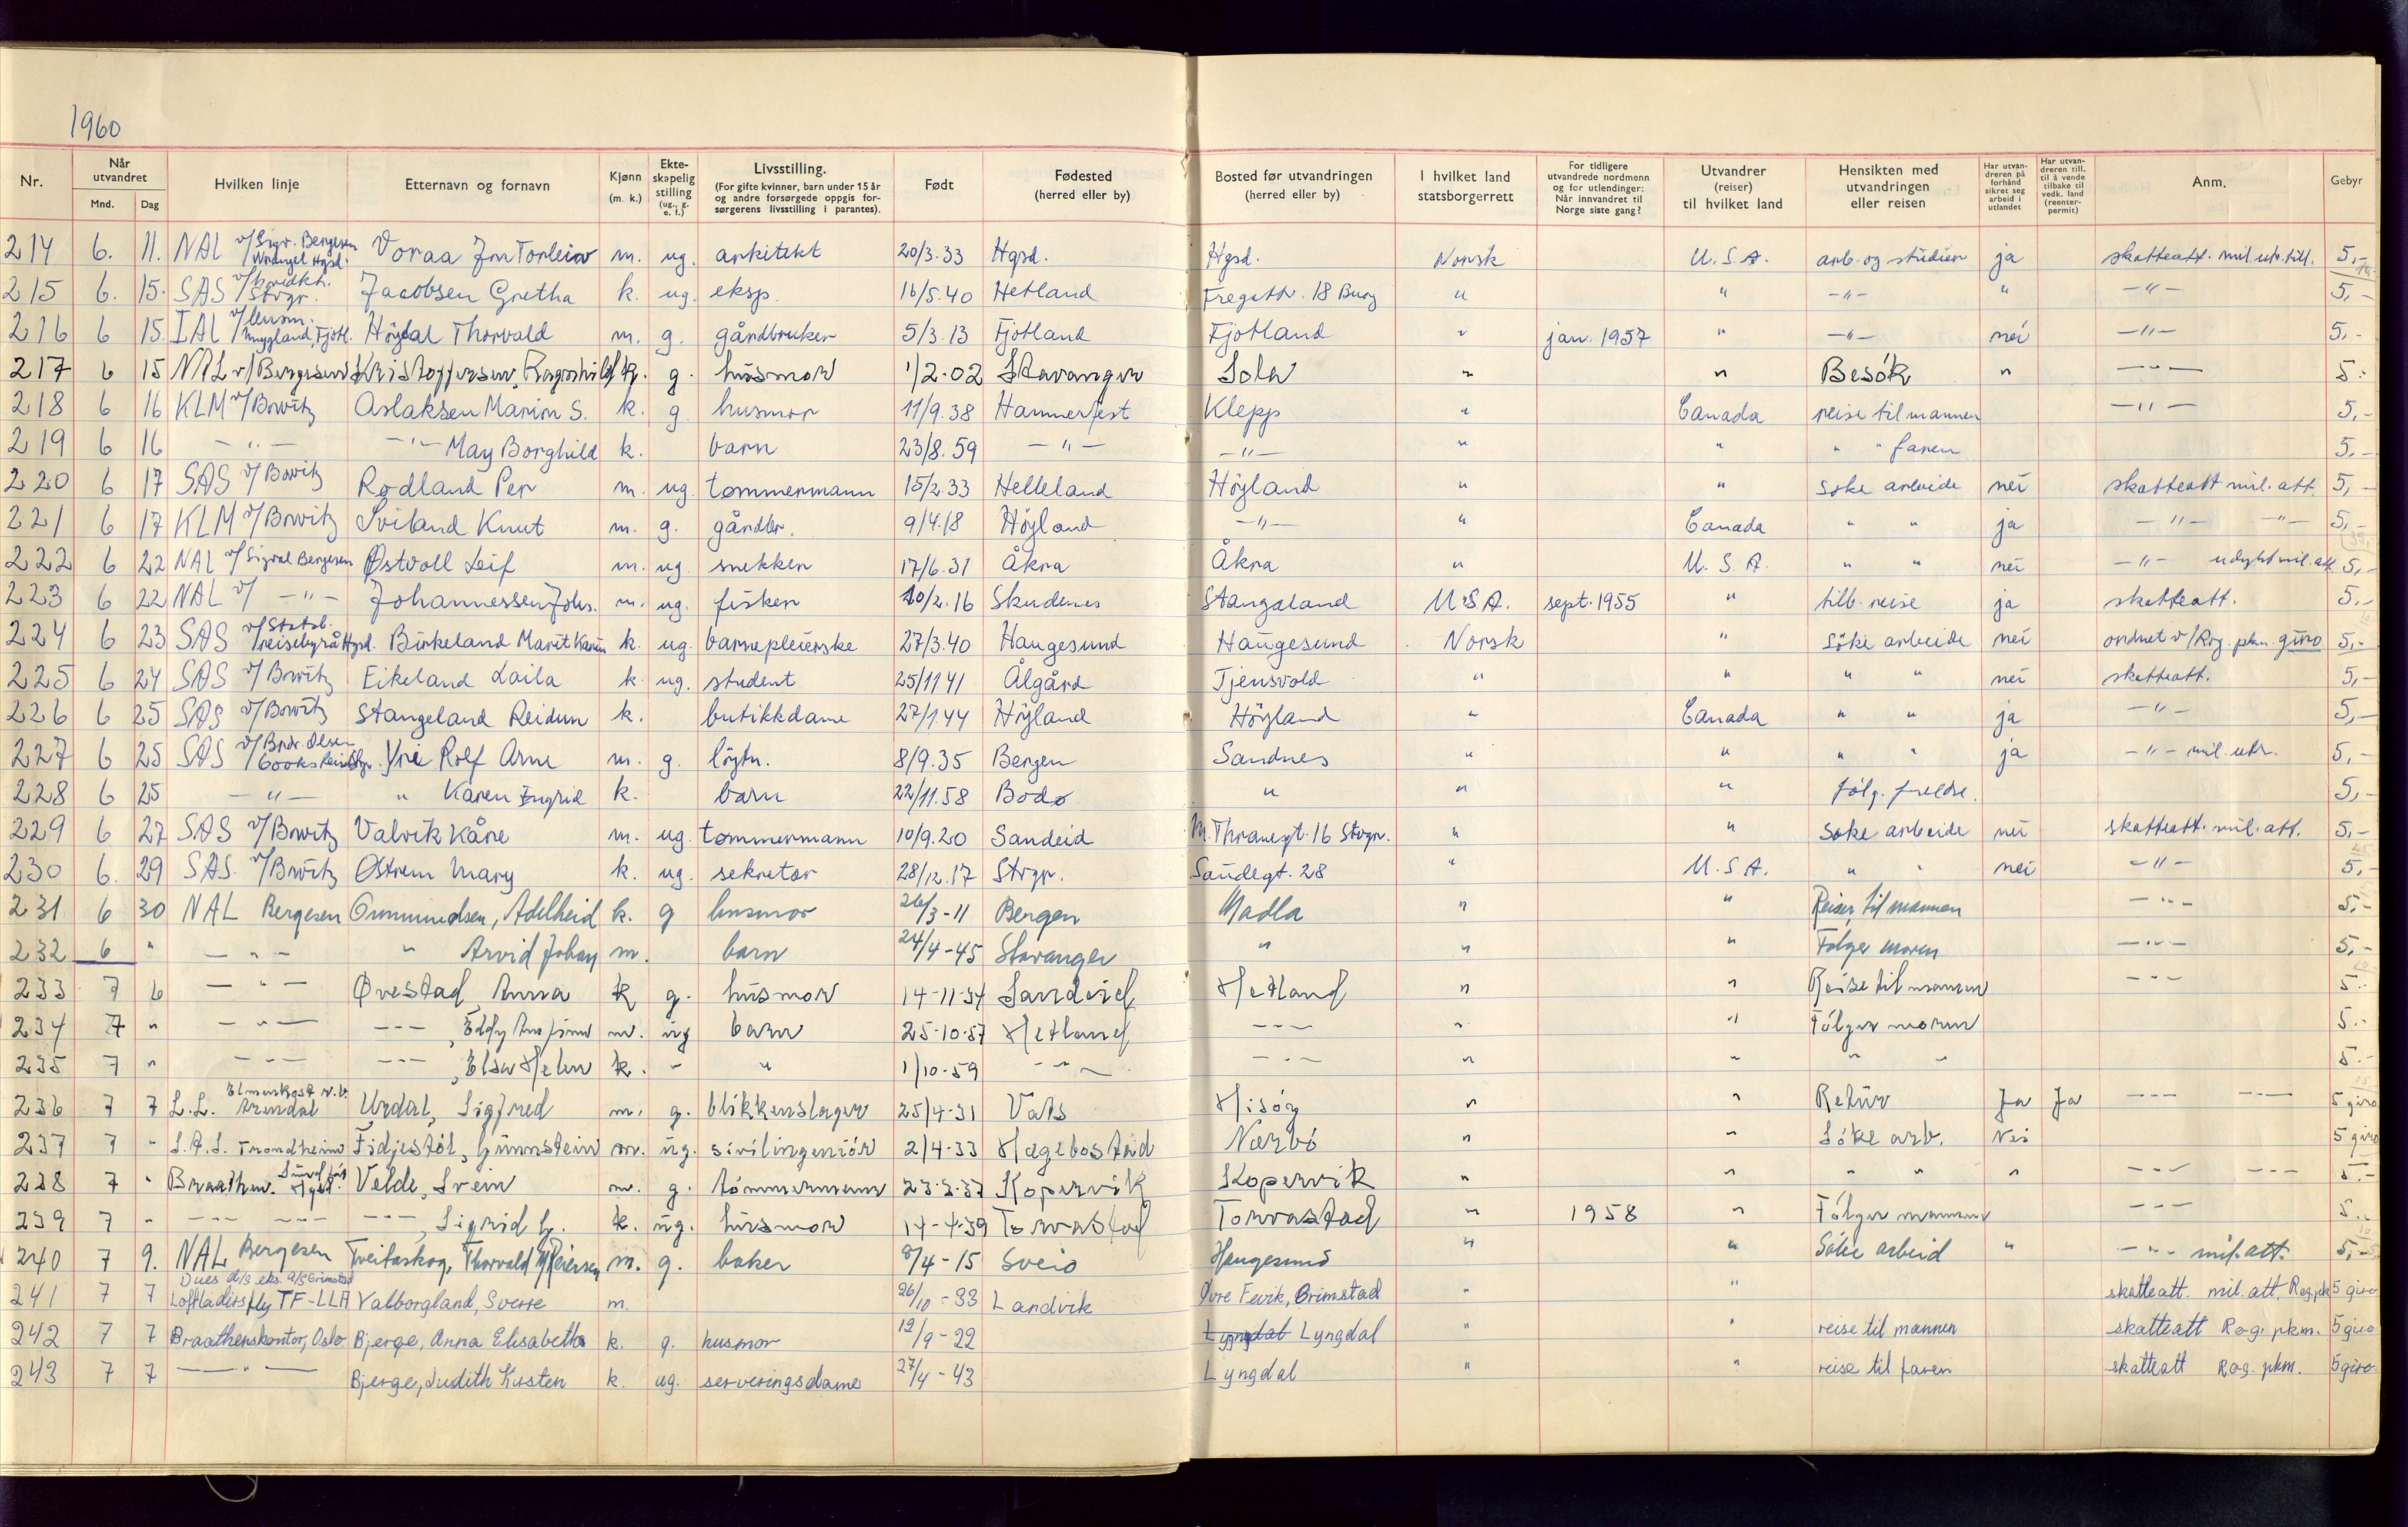 1960
Nr. | Når utvandret Mnd. Dag | Hvilken linje | Etternavn og fornavn | Kjønn (m. k.) | Ekteskapelig stilling (ug., g. e. f.) | Livsstilling. (For gifte kvinner, barn under 15 år og andre forsørgede oppgis forsørgerens livsstilling i parantes). | Født | Fødested (herred eller by) | Bosted før utvandringen (herred eller by) | I hvilket land statsborgerrett | For tidligere utvandrede nordmenn og for utlendinger: Når innvandret til Norge siste gang? | Utvandrer (reiser) til hvilket land | Hensikten med utvandringen eller reisen | Har utvandreren på forhånd sikret seg arbeid i utlandet | Har utvandreren till. til å vende tilbake til vedk. land (reenterpermit) | Anm. | Gebyr
214 6. 11. NAL v/Sigv. Bergesen Wrangel Hgsd. Voraa Jon Torleiv m. ug. arkitekt 20/3.33 Hgsd. Hgsd. Norsk U.S.A. arb. og studier ja skatteatt. mil. utr. till. 5,-
215 6. 15. SAS v/ Stvgr. Jacobsen Gretha k. ug. eksp. 16/5.40 Hetland Fregattv. 18 Buøy " " -"- " -"- 5,-
216 6 15. IAL v/lensm. Fjotl. Höydal Thorvald m. g. gårdbruker 5/3.13 Fjotland Fjotland " jan. 1957 " -"- nei -"- 5,-
217 6 15 NAL v/Bergesen Kristoffersen, Ragnhild k. g. husmor 1/2-02 Stavanger Sola " " Besök " -"- 5.-
218 6 16 KLM v/Bowitz Aslaksen Marion S. k. g. husmor 11/9.38 Hammerfest Klepp " Canada reise til mannen -"- 5,-
219 6 16 -"- -"- May Borghild k. barn 23/8.59 -"- -"- " " " " faren 5,-
220 6 17 SAS v/Bowitz Rødland Per m. ug. tømmermann 15/2.33 Helleland Höyland " " søke arbeide nei skatteatt mil. att. 5,-
221 6 17 KLM v/Bowitz Sviland Knut m. g. gårdbr. 9/4.18 Höyland -"- " Canada " " ja -"- -"- 5,-
222 6 22 NAL v/Sigval Bergesen Østvoll Leif m. ug. snekker 17/6.31 Åkra Åkra " U.S.A. " " nei -"- mil. att. 5,-
223 6 22 NAL v/ -"- Johannessen Johs. m. ug. fisker 10/2.16 Skudenes Stangaland U.S.A. sept. 1955 " tilb. reise ja skatteatt. 5,-
224 6 23 SAS v/Statsb. reisebyrå Hgsd. Birkeland Marit Karin k. ug. barnepleierske 27/3.40 Haugesund Haugesund Norsk " söke arbeide nei ordnet v/Rog. pkm. giro 5,-
225 6 24 SAS v/Bowitz Eikeland Laila k. ug. student 25/11 41 Ålgård Tjensvold " " " " nei skatteatt. 5,-
226 6 25 SAS v/Bowitz Stangeland Reidun k. butikkdame 27/1 44 Höyland Höyland " Canada " " ja -"- 5,-
227 6 25 SAS v/Brdr. Olsen Yri Rolf Arne m. g. löytn. 8/9.35 Bergen Sandnes " " " " ja -"- mil. utr. 5,-
228 6 25 -"- " Karen Ingrid k. barn 22/11.58 Bodø " " " fölg. foreldr. 5,-
229 6 27 SAS v/Bowitz Valvik Kåre m. ug. tømmermann 10/9.20 Sandeid M. Thranesgt. 16 Stvgr. " " søke arbeide nei skatteatt. mil. att. 5,-
230 6. 29 SAS. v/Bowitz Østrem Mary k. ug. sekretær 28/12.17 Stvgr. Sandegt. 28 " U.S.A. " " nei -"- 5,-
231 6 30 NAL Bergesen Gummundsen, Adelheid k. g husmor 26/3-11 Bergen Madla " " Reiser til mannen -"- 5,-
232 6 " -"- " Arvid Johan m. barn 24/4-45 Stavanger " " " Følger moren -"- 5,-
233 7 6 -"- Øvestad, Anna k g. husmor 14-11-34 Sandeid Hetland " " Reise til mannen -"- 5.-
234 7 " -"- -"-, Eddy m. ug barn 25-10-57 Hetland -"- " " Fölger moren 5.-
235 7 " -"- -"-, Elsw Helen k. " " 1/10-59 -"- -"- " " " " 5.-
236 7 7 L.L. Arendal Urdal, Sigfred m. g. blikkenslager 25/4-31 Vats Hisöy " " Retur Ja Ja -"- -"- 5 giro
237 7 " S.A.S. Trondheim Fidjestöl, Gunnstein m. ug. sivilingeniör 2/4-33 Hægebostad Nærbö " " Söke arb. Nei 5 giro
238 7 " Braathen. Velde, Svein m. g. tömmermann 23-3-37 Kopervik Kopervik " " " " " -"- -"- 5.-
239 7 " -"- -"- -"-, Sigrid G. k. ug. husmor 14-4-39 Torvastad Torvastad " 1958 " Fölger mannen -"- 5.-
240 7 9. NAL Bergesen Tveitaskog, Thorvald M. Reiersen m. g. baker 8/4-15 Sveio Haugesund " " Söke arbeid " -"- mil. att. 5,-
241 7 7 Dues d/s eks. a/s Grimstad Loftladirsfly TF-LLA Valborgland, Sverre m. 26/10-33 Landvik Øvre Fevik, Grimstad " " skatteatt. mil. att. Rog. pk 5 giro
242 7 7 Braathenskontor, Oslo Bjerge, Anna Elisabetha k. g. husmor 12/9-22 Lyngdal Lyngdal " " reise til mannen skatteatt Rog. pkm. 5 giro
243 7 7 -"- Bjerge, Judith Kirsten k. ug. serveringsdame 27/4-43 Lyngdal " " reise til faren skatteatt Rog. pkm. 5 giro